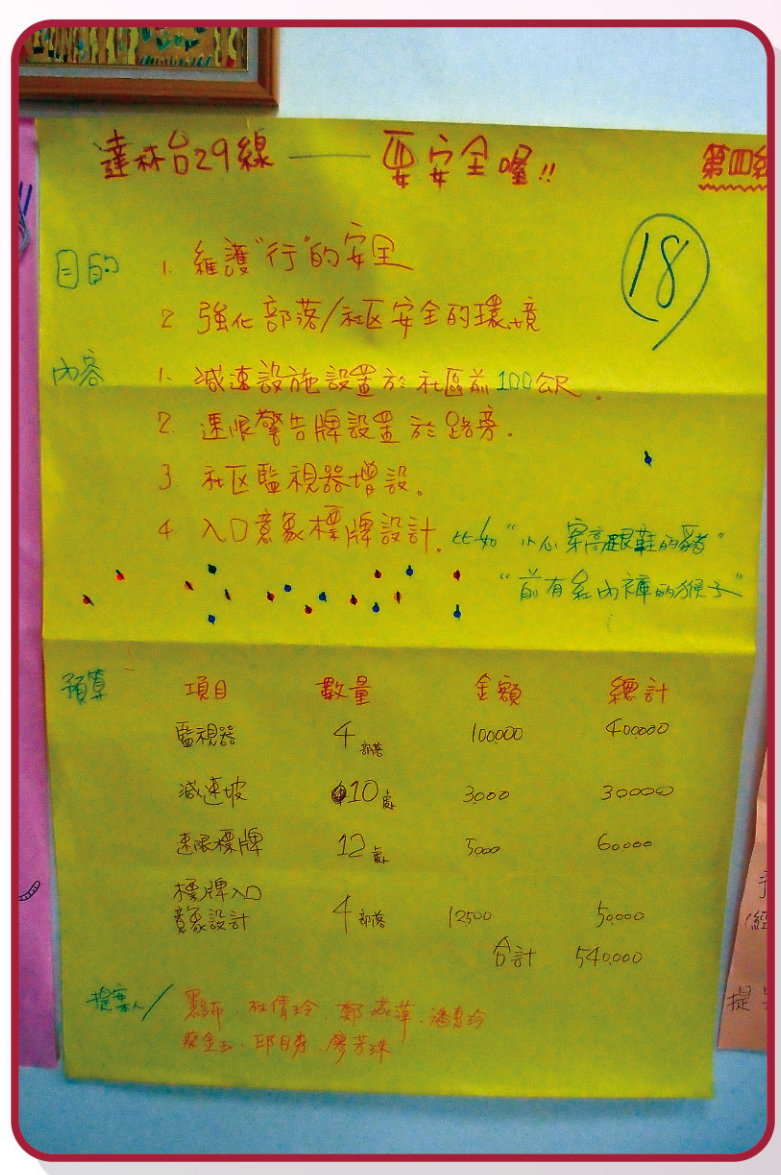 達林台29線 —— 要安全喔!!
第四組
18
目的 1. 維護"行"的安全
2. 強化部落/社区安全的環境
內容 1. 減速設施設置於社區前100公尺。
2. 速限警告牌設置於路旁.
3 社区監視器增設。
4. 入口意象標牌設計. 比如"小心穿高跟鞋的豬"
"前有紅內褲的猴子"
預算 項目 數量 金額 總計
監視器 4部落 100000 400000
減速坡 10處 3000 30000
速限標牌 12處 5000 60000
標牌入口
意象設計 4部落 12500 50000
合計 540,000
提案人/ 杜倩玲.鄭燕萍.潘惠珍
蔡金玉.邱自秀.廖芳珠
(經
提